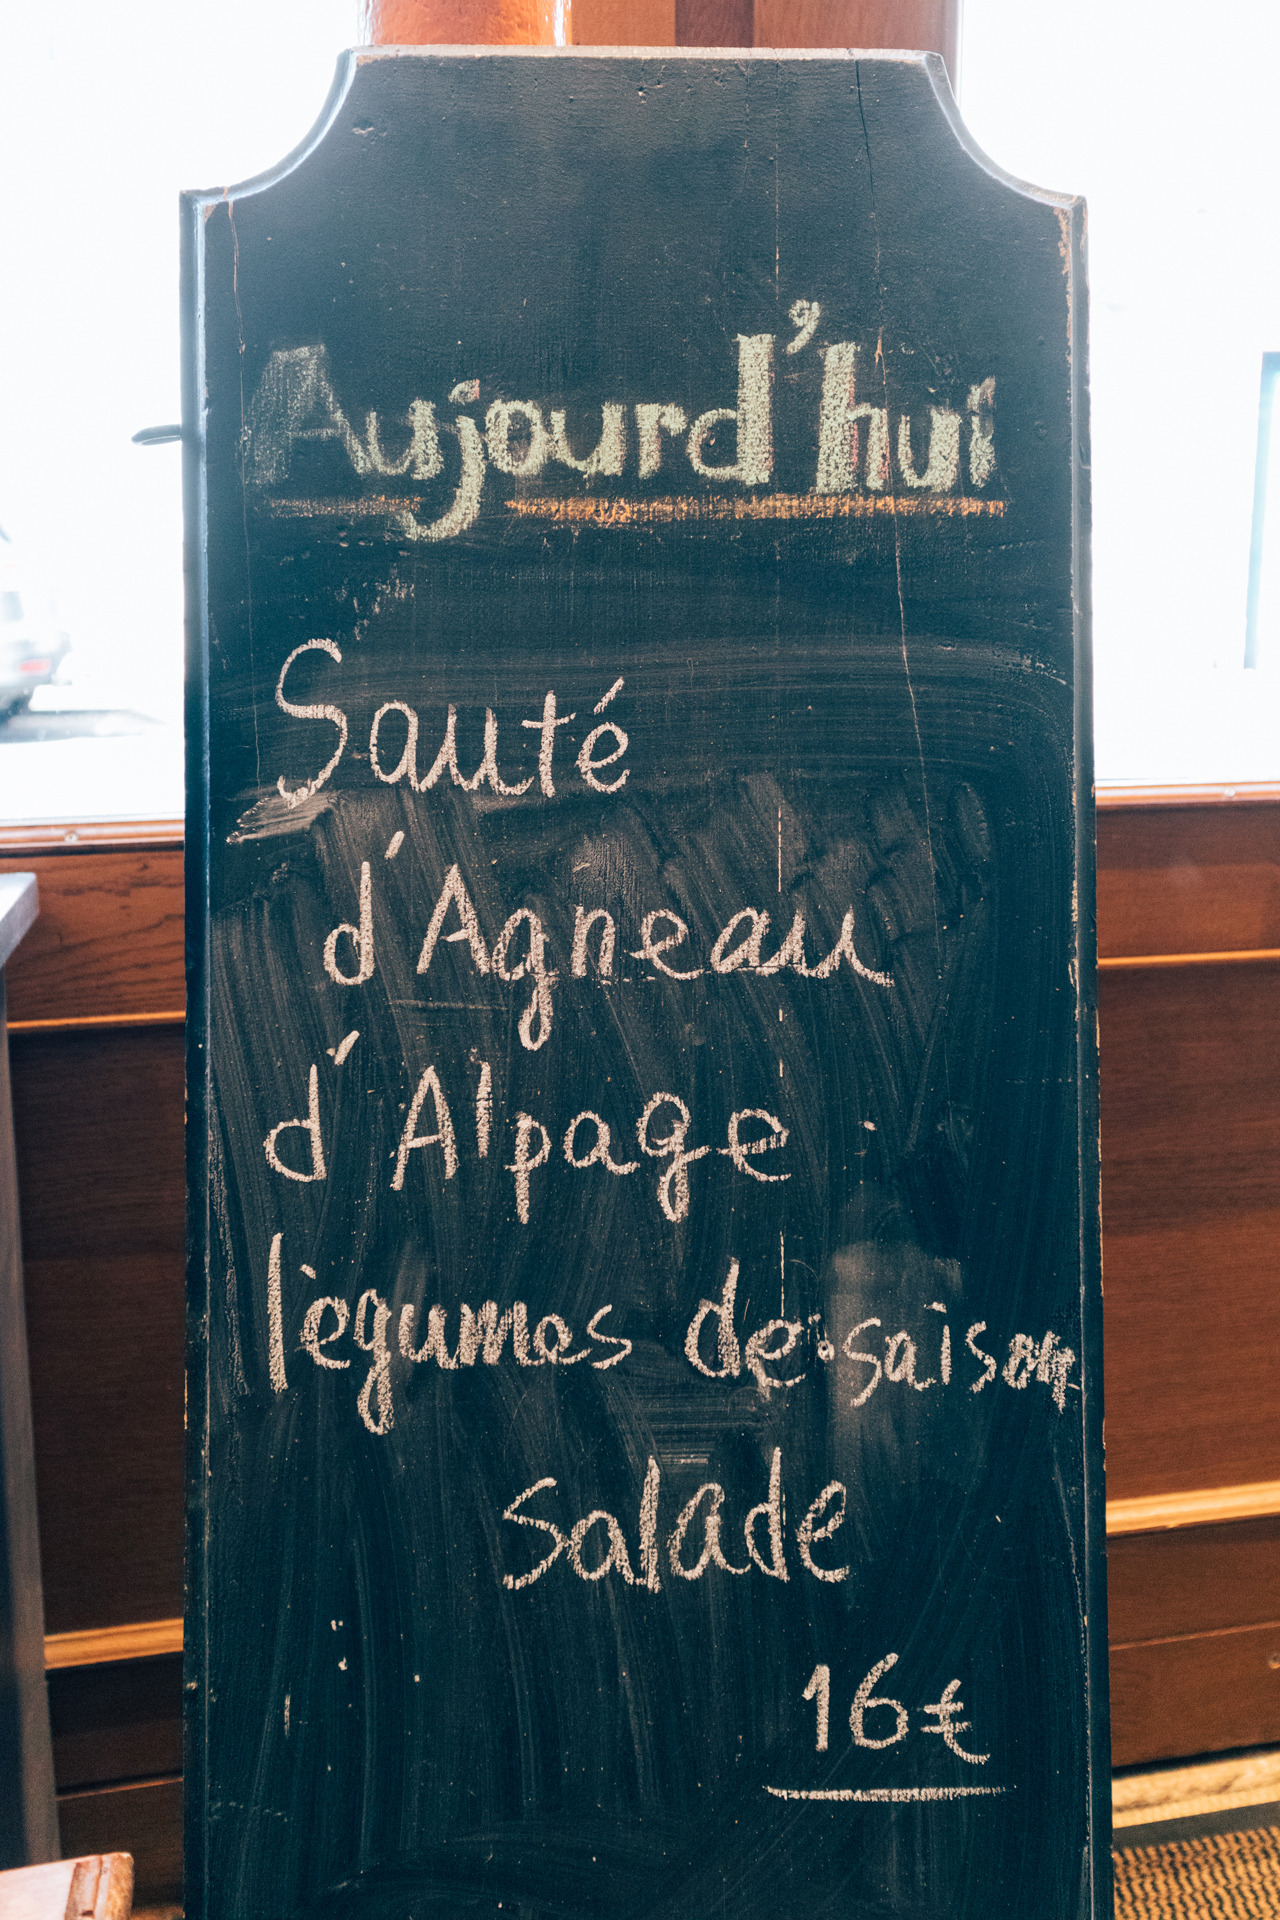 Aujourd'hui
Sauté
d'Agneau
d'Alpage
lègumes de saison
salade
16€